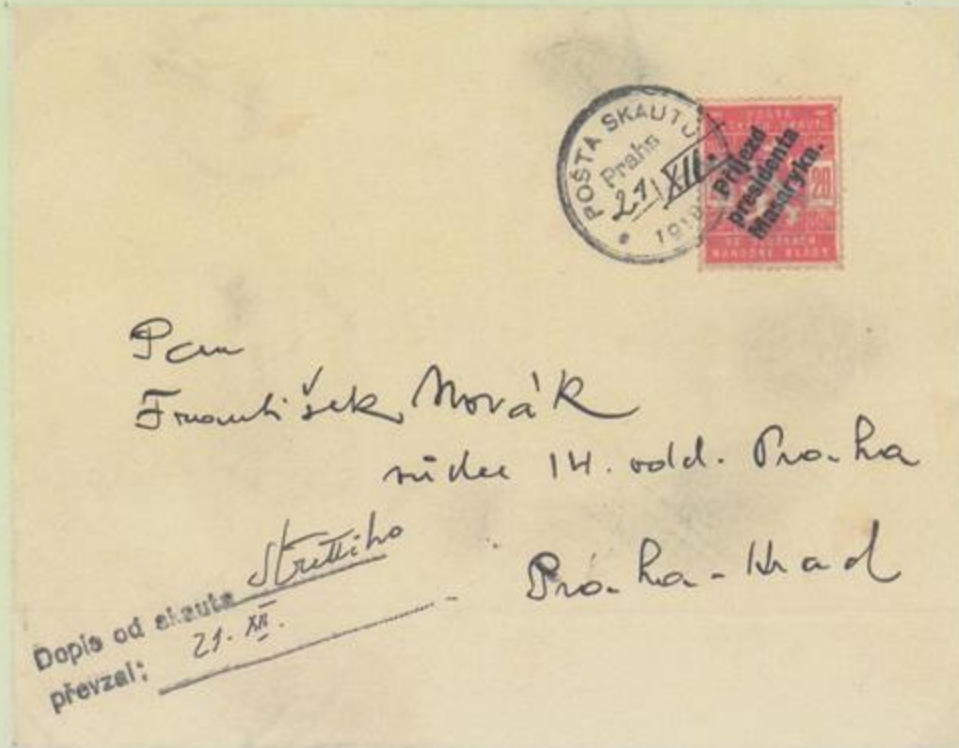 POŠTA SKAUTŮ
Praha
21 XII.
191
Příjezd
presidenta
Masaryka.
20
VE SLUŽBÁCH
NÁRODNÍ VLÁDY
Pan
František Novák
vůdce 14. odd. Praha
Praha-Hrad
Dopis od skauta Střettiho
převzal: 21. XII.